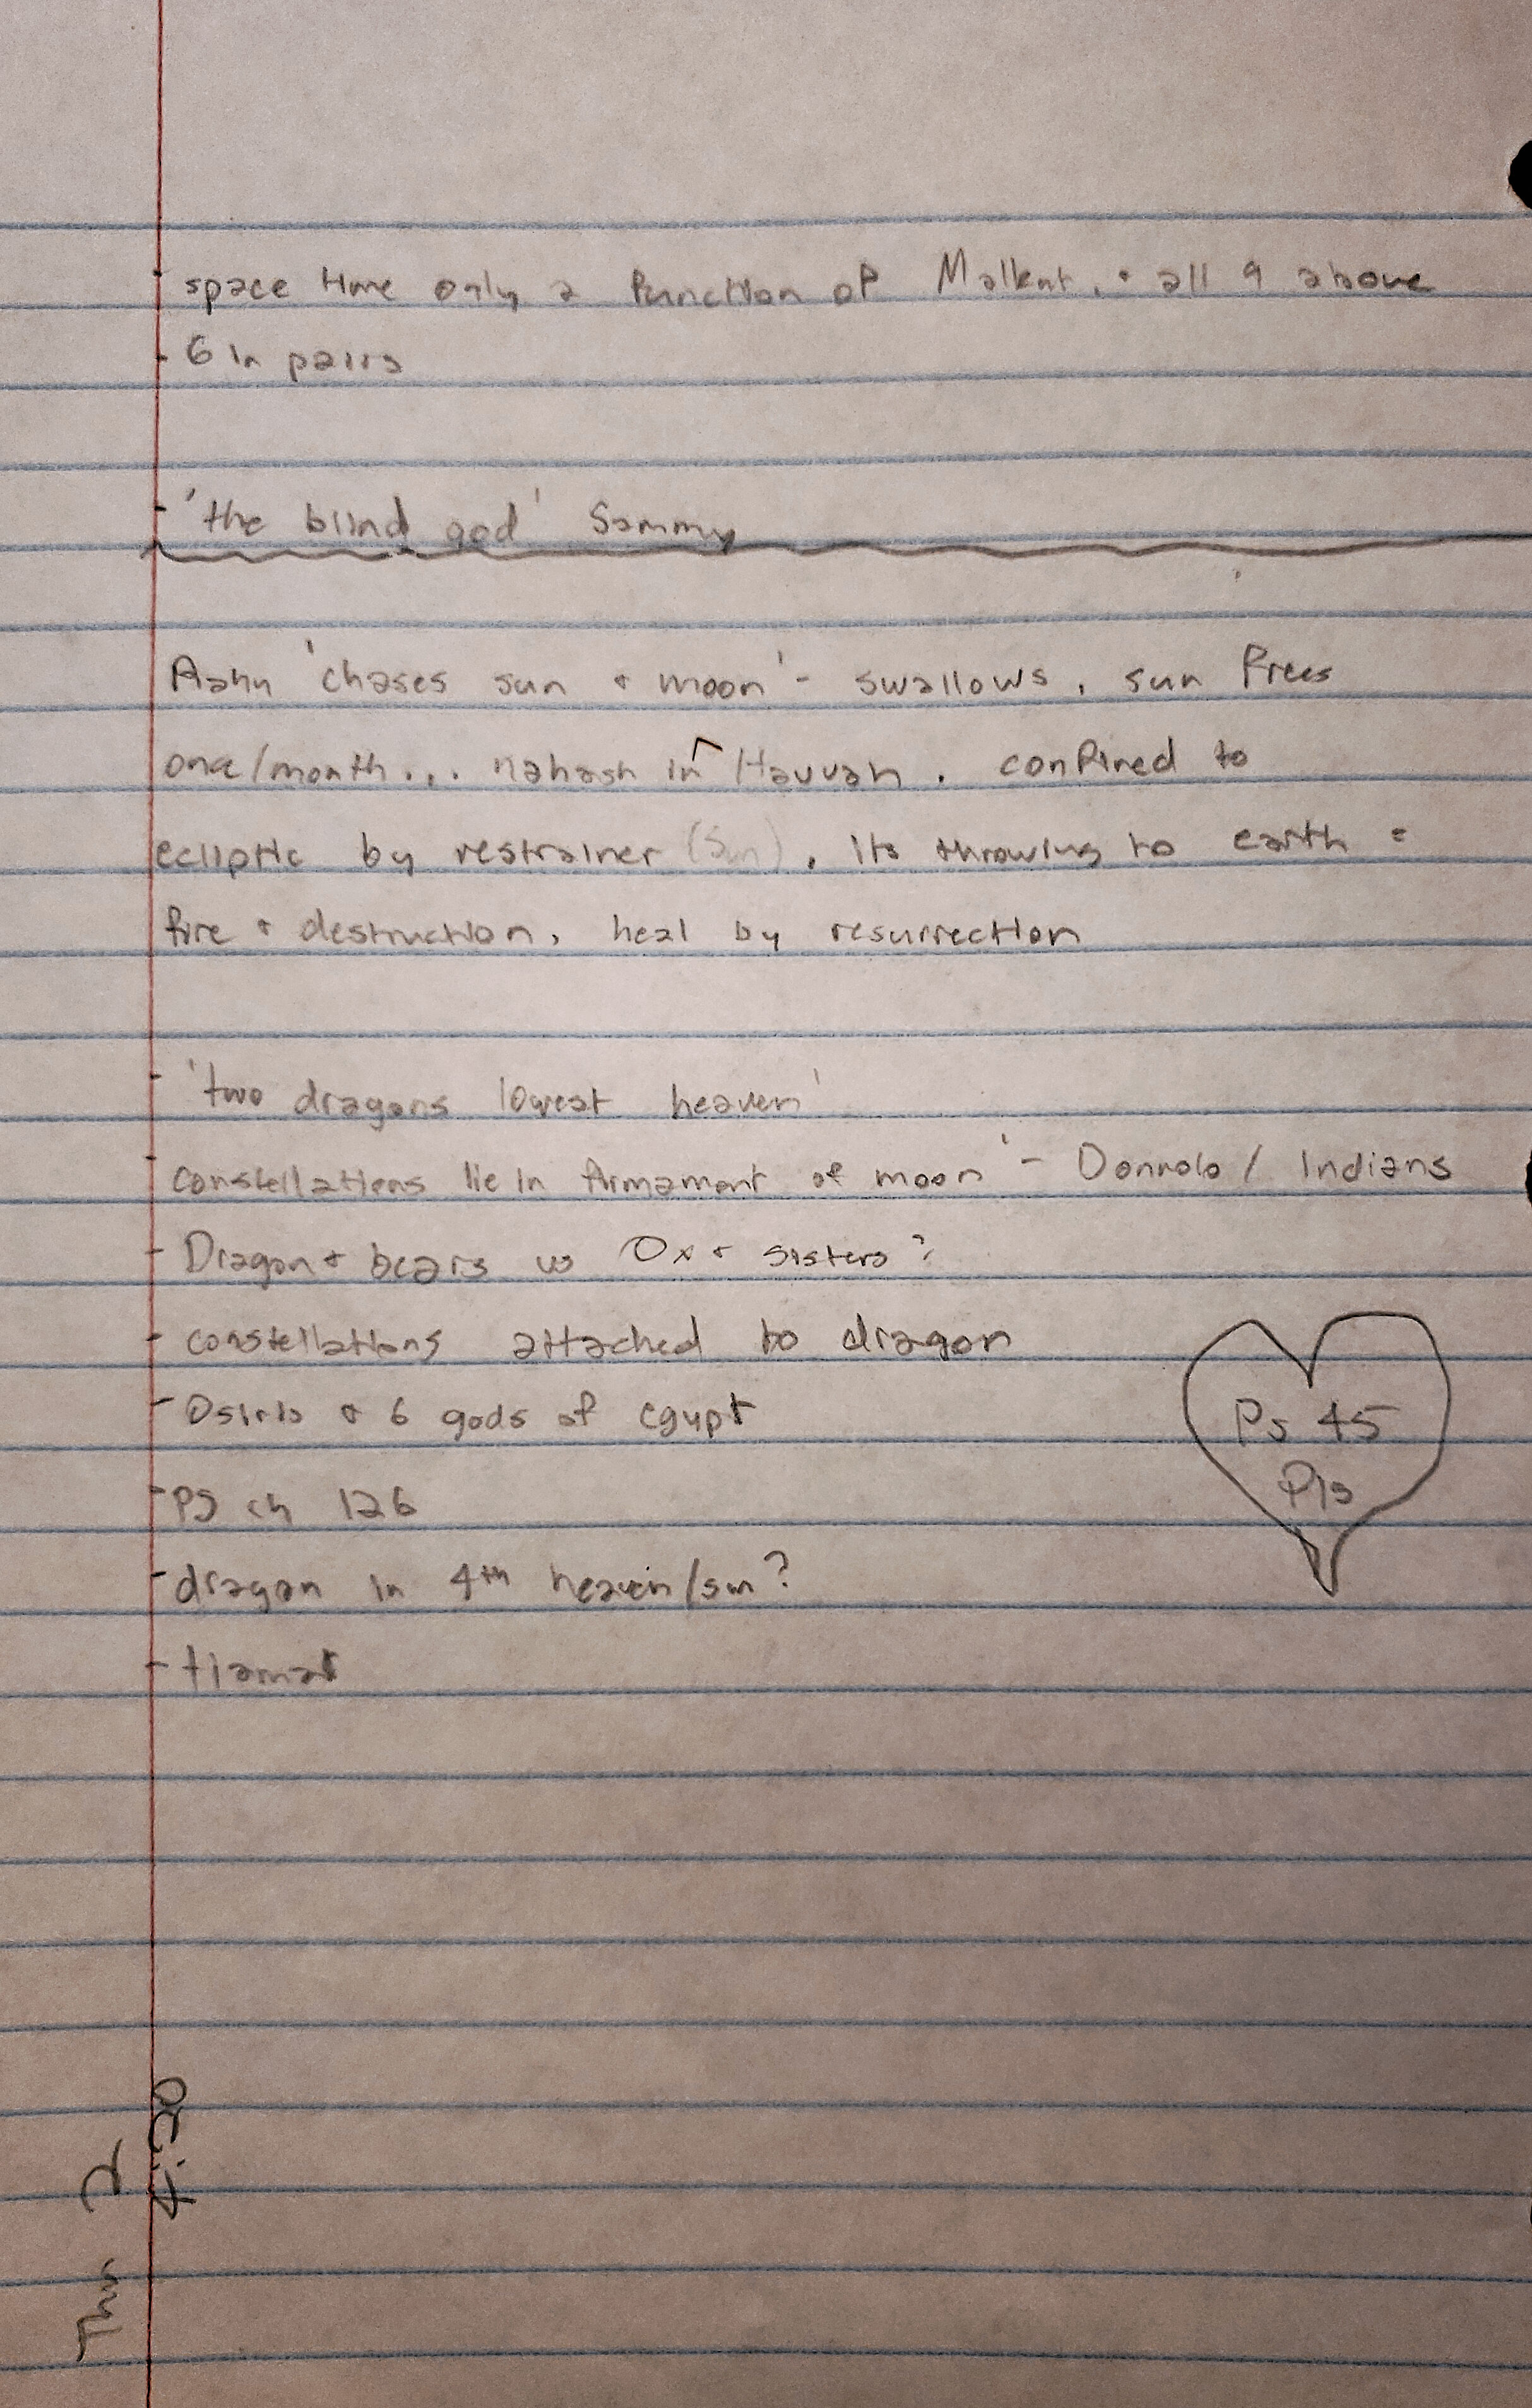 - space time only a function of Malkut, + all 9 above
- 6 in pairs
- 'the blind god' Sammy
'chases sun + moon' - swallows, sun frees
one/month... nahash in ^ Havvah. confined to
ecliptic by restrainer (Sun). its throwing to earth =
fire + destruction, heal by resurrection
- 'two dragons lowest heaven'
- constellations lie in firmament of moon' - Donnolo / Indians
- Dragon + bears w Ox + sisters?
- constellations attached to dragon
- Osiris + 6 gods of egypt
- PS ch 126
- dragon in 4th heaven/sun?
- tiamat
Ps 45
Pls
Thur 2
4:20